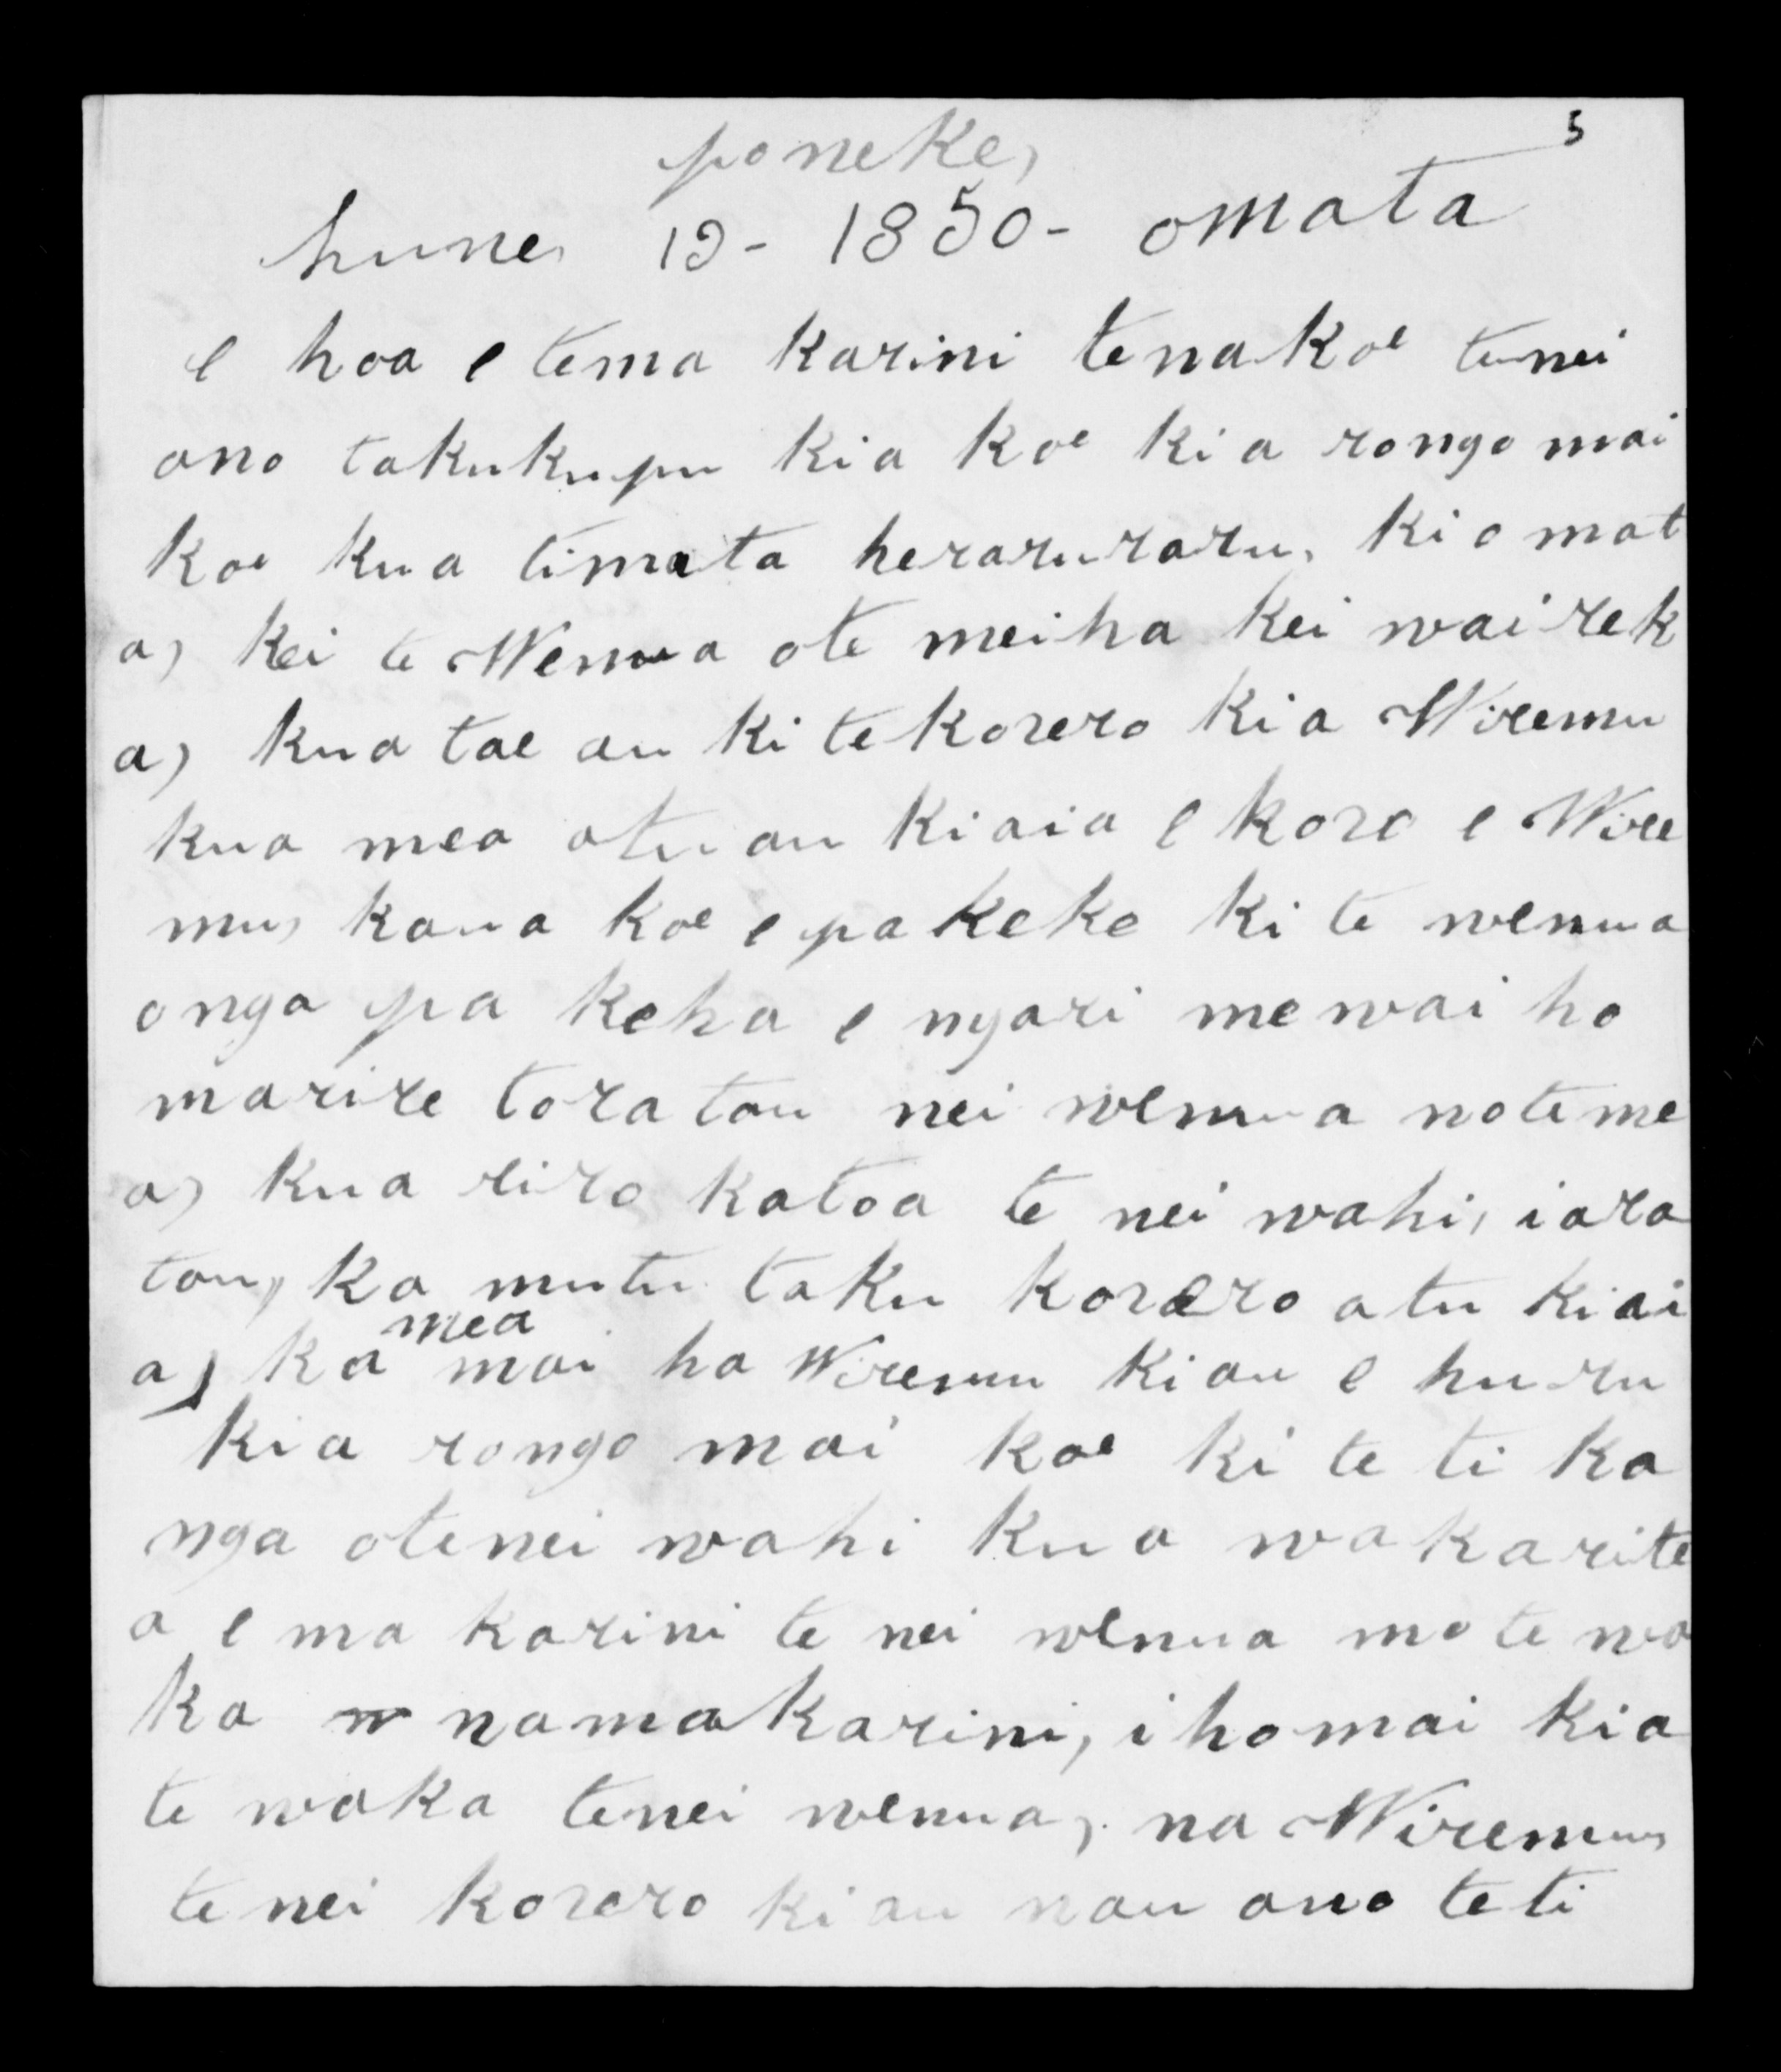 5
poneke,
hune, 19- 1850- omata
e hoa e tema karini tenakoe tenei
ano takukupu kia koe kia rongo mai
koe kua timata heraruraru, ki omat
a, kei te Wenua ote meiha kei wairek
a, kua tae au ki tekorero kia Wiremu
kua mea atu au kiaia e koro e Wire
mu, kaua koe e pakeke ki te wenua
onga pa keha e ngari mewai ho
marire toratou nei wenua noteme
a, kua riro katoa te nei wahi, iara
tou, ka mutu taku korero atu kiai
a, ka mea mai ha Wiremu kiau e huru
kia rongo mai koe ki te ti ka
nga otenei wahi kua wakarite
a e ma karini te nei wenua mo te wa
ka w namakarini, i homai kia
te waka tenei wenua, na Wiremu,
te nei korero kiau nau ano te ti